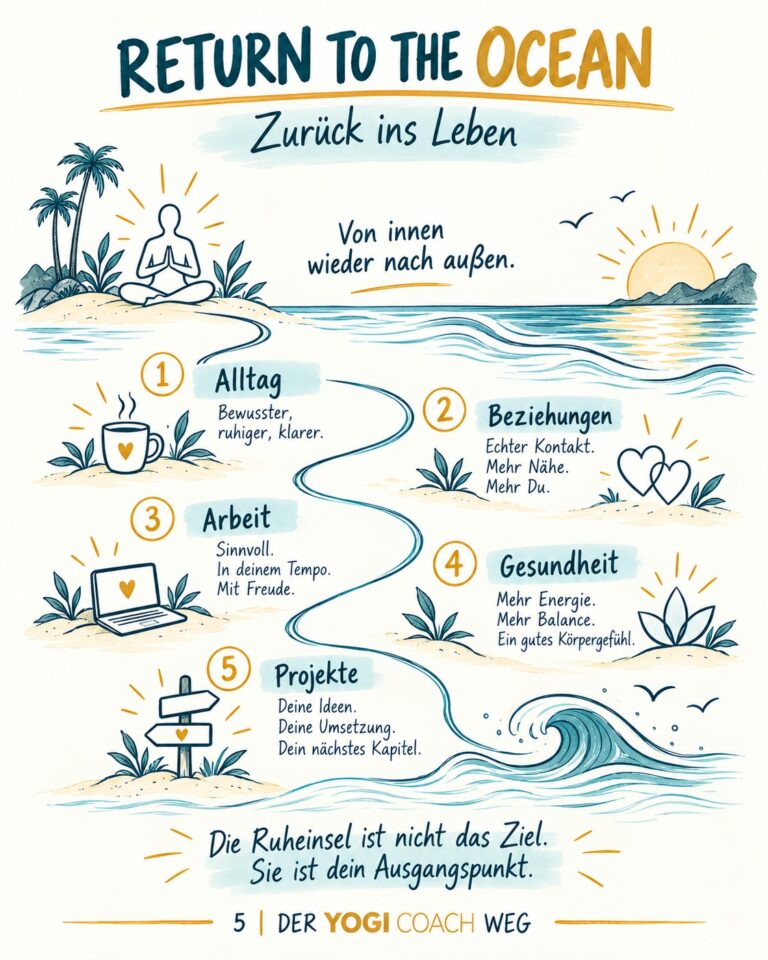 RETURN TO THE OCEAN
Zurück ins Leben
Von innen
wieder nach außen.
1 Alltag
Bewusster,
ruhiger, klarer.
2 Beziehungen
Echter Kontakt.
Mehr Nähe.
Mehr Du.
3 Arbeit
Sinnvoll.
In deinem Tempo.
Mit Freude.
4 Gesundheit
Mehr Energie.
Mehr Balance.
Ein gutes Körpergefühl.
5 Projekte
Deine Ideen.
Deine Umsetzung.
Dein nächstes Kapitel.
Die Ruheinsel ist nicht das Ziel.
Sie ist dein Ausgangspunkt.
5 | DER YOGI COACH WEG